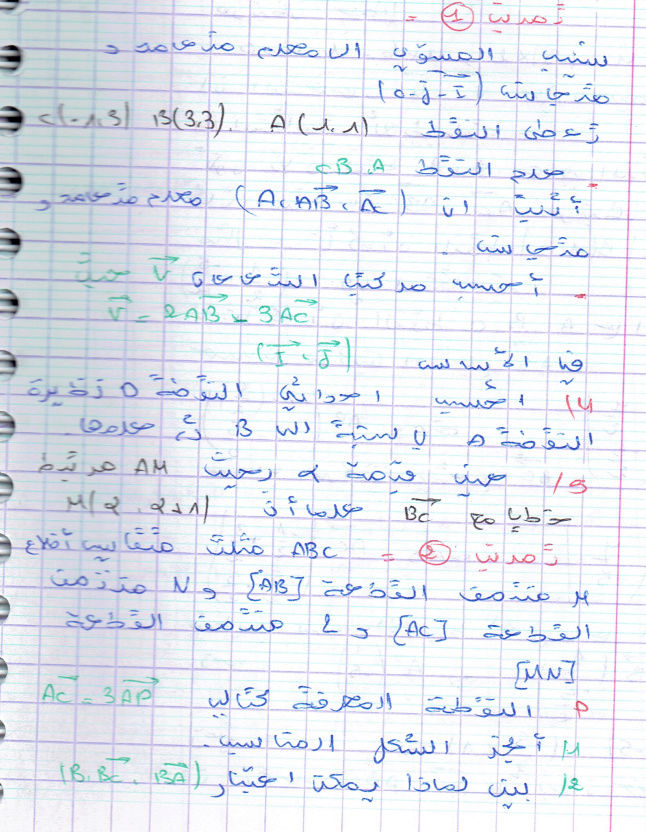 تمرين ① =
ننسب المستوي الى معلم متعامد و
متجانس (O . J . I)
نعطي النقط A(1,1) B(3,3). C(-1,3)
- علم النقط A . B C
أثبت ان (A, AB, AC) معلم متعامد و
متجانس
- أحسب مركبتي الشعاع V حيث
V = 2AB - 3AC
في الأساس (I . J)
4/ احسب احداثيي النقطة D نظيرة
النقطة A بالنسبة الى B ثم علمها
5/ عين قيمة α بحيث AM مرتبط
خطيا مع BC علما أن M(α . α+1)
تمرين ② = ABC مثلث متقايس أضلاع
M منتصف القطعة [AB] و N منتصف
القطعة [AC] و L منتصف القطعة
[MN]
P النقطة المعرفة كتالي AC = 3AP
1/ أنجز الشكل المناسب.
2/ بين لماذا يمكن اعتبار (B, BC, BA)